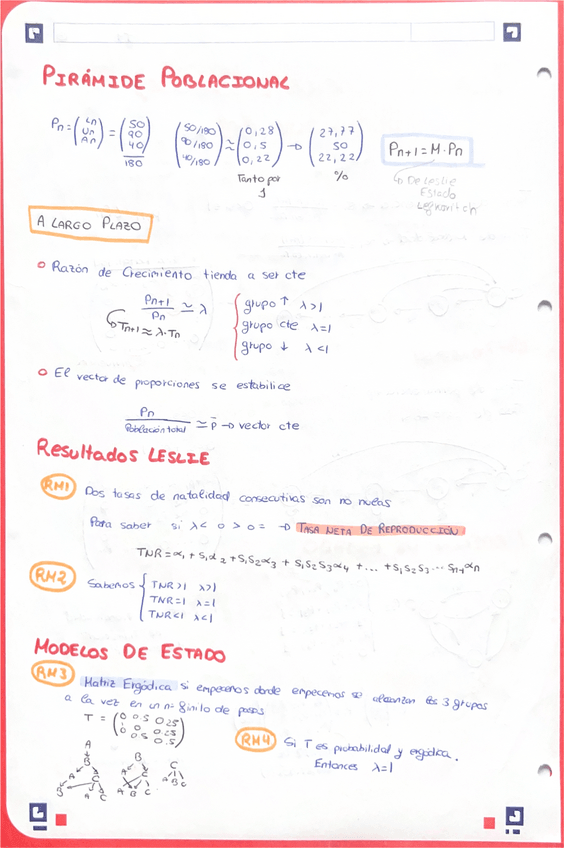 PIRÁMIDE POBLACIONAL
Pn = (Ln Un An) = (50 90 40) (50/180 90/180 40/180) ≈ (0,28 0,5 0,22) → (27,77 50 22,22)
180
Tanto por 1
%
Pn+1 = M · Pn
↳ De Leslie
Estado
Legkovitch
A LARGO PLAZO
Razón de Crecimiento tienda a ser cte
Pn+1 / Pn ≃ λ
Tn+1 ≈ λ · Tn
grupo ↑ λ>1
grupo cte λ=1
grupo ↓ λ<1
El vector de proporciones se estabilice
Pn / Población total ≃ p̄ → vector cte
Resultados LESLIE
RM1 Dos tasas de natalidad consecutivas son no nulas
Para saber si λ < o > o = → TASA NETA DE REPRODUCCIÓN
TNR = α1 + S1α2 + S1S2α3 + S1S2S3α4 + ... + S1S2S3 ... Sn-1αn
RM2 Sabemos
TNR>1 λ>1
TNR=1 λ=1
TNR<1 λ<1
MODELOS DE ESTADO
RM3 Matriz Ergódica si empecemos donde empecemos se alcanzan los 3 grupos
a la vez en un nº finito de pasos
T = (0 0.5 0.25
0 0 0.25
0.5 0.5)
A
B
B C
A
C
A B C
RM4 Si T es probabilidad y ergódica.
Entonces λ=1